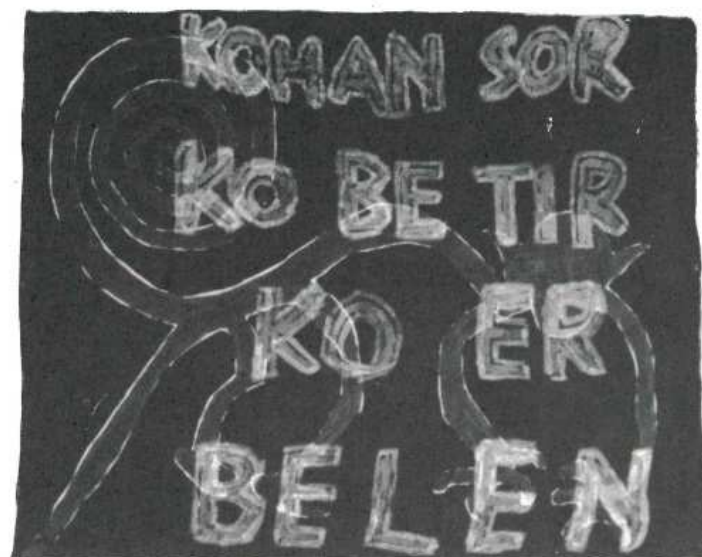 KOHAN SOR
KO BE TIR
KO ER
BELEN